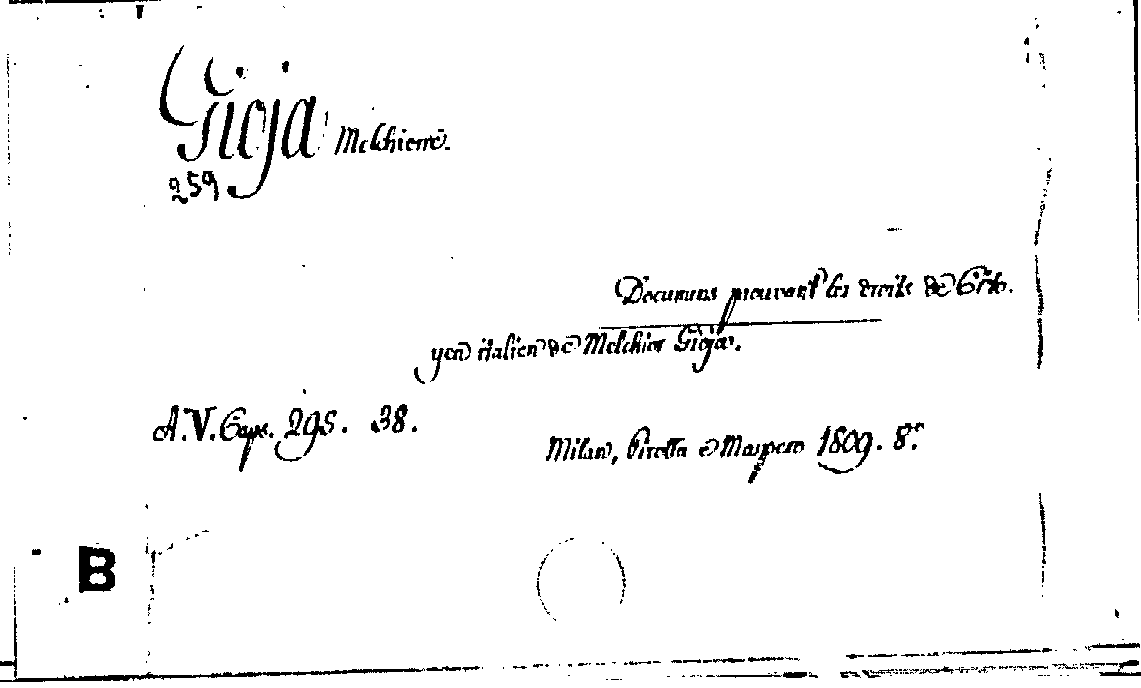 Gioja Melchiorre.
259
Documens prouvant les droits de Cito-
yen italien de Melchior Gioja.
A.V. 295. 38.
Milan, Pirotta e Maspero 1809. 8.º
B